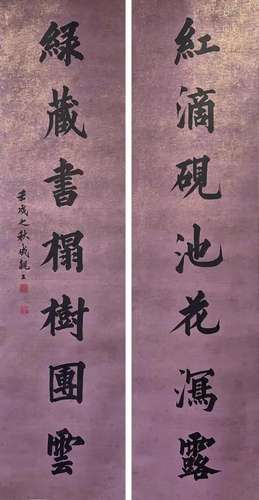 紅滴硯池花瀉露
綠藏書榻樹團雲
壬戌之秋成親王